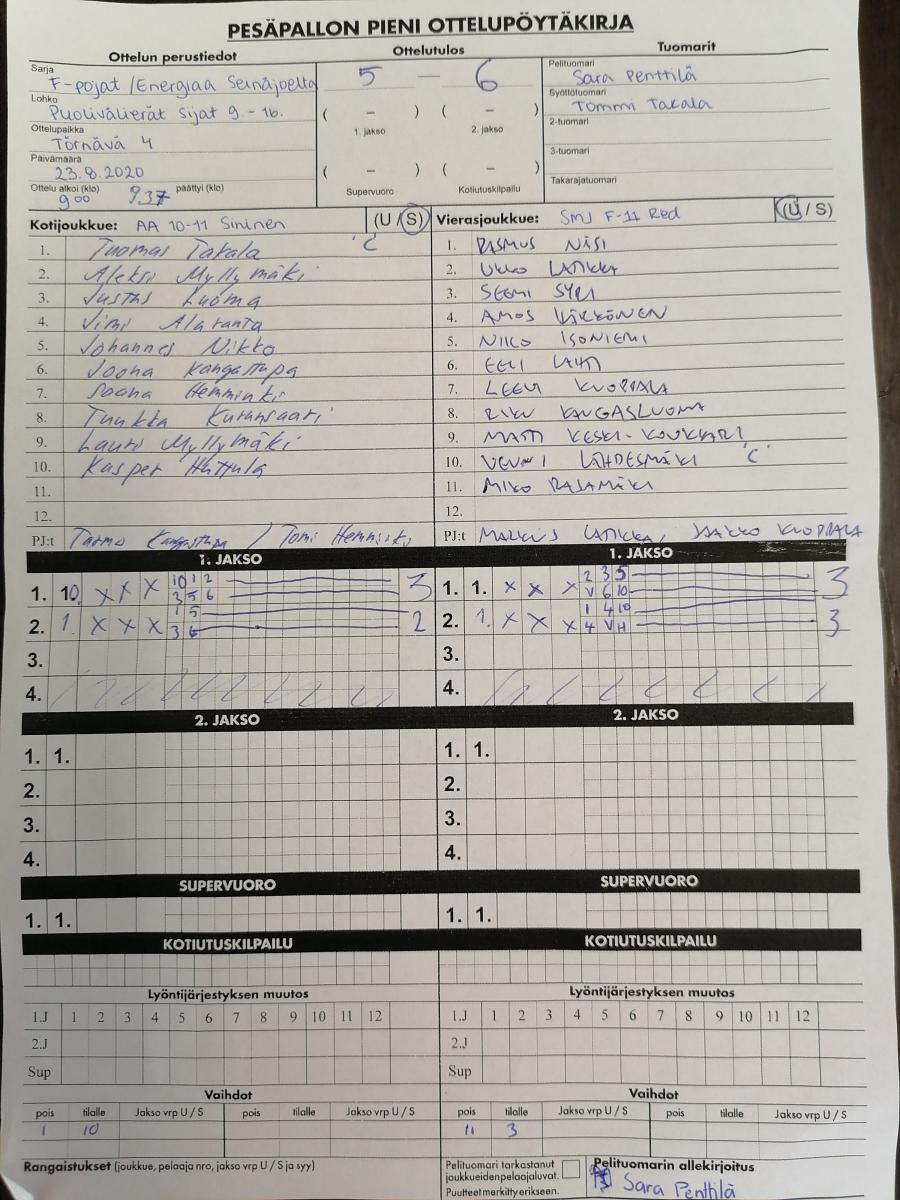 PESÄPALLON PIENI OTTELUPÖYTÄKIRJA
Ottelun perustiedot
Ottelutulos
Tuomarit
Sarja
F-pojat / Energiaa Seinäjoelta
Lohko
Puolivälierät Sijat 9 - 16.
Ottelupaikka
Törnävä 4
Päivämäärä
23.8.2020
Ottelu alkoi (klo) päättyi (klo)
9.00 9.37
5 — 6
( – ) ( – )
1. jakso 2. jakso
( – ) ( – )
Supervuoro Kotiutuskilpailu
Pelituomari
Sara Penttilä
Syöttötuomari
Tommi Takala
2-tuomari
3-tuomari
Takarajatuomari
Kotijoukkue: AA 10-11 Sininen (U / S)
1. Tuomas Takala 'C'
2. Aleksi Myllymäki
3. Justus Luoma
4. Jimi Alaranta
5. Johannes Nikko
6. Joona Kangastupa
7. Joona Hemminki
8. Tuukka
9. Lauri Myllymäki
10. Kasper Huttula
11.
12.
PJ:t Tarmo Kangastupa / Tomi Hemminki
Vierasjoukkue: SMJ F-11 Red (U / S)
1. RASMUS NÄSI
2. UKKO LATIKKA
3. SEEMI SYRI
4. AMOS KÄRKKÖNEN
5. NIILO ISONIEMI
6. EELI LAHTI
7. LEEVI KUOPPALA
8. RIKU KANGASLUOMA
9. MATTI KESKI-KOUKKARI
10. LÄHDESMÄKI 'C'
11. MIKO RAJAMÄKI
12.
PJ:t MARKUS LATIKKA, JAAKKO KUOPPALA
1. JAKSO
1. 10. X X X 10 1 2 3
3 5 6
2. 1. X X X 1 5 2
3 6
3.
4.
1. JAKSO
1. 1. X X X 2 3 5 3
V 6 10
2. 1. X X X 1 4 10 3
4 V H
3.
4.
2. JAKSO
1. 1.
2.
3.
4.
2. JAKSO
1. 1.
2.
3.
4.
SUPERVUORO
1. 1.
SUPERVUORO
1. 1.
KOTIUTUSKILPAILU
KOTIUTUSKILPAILU
Lyöntijärjestyksen muutos
1.J 1 2 3 4 5 6 7 8 9 10 11 12
2.J
Sup
Lyöntijärjestyksen muutos
1.J 1 2 3 4 5 6 7 8 9 10 11 12
2.J
Sup
Vaihdot
pois tilalle Jakso vrp U / S pois tilalle Jakso vrp U / S
1 10
Vaihdot
pois tilalle Jakso vrp U / S pois tilalle Jakso vrp U / S
11 3
Rangaistukset (joukkue, pelaaja nro, jakso vrp U / S ja syy)
Pelituomari tarkastanut
joukkueidenpelaajaluvat.
Puutteet merkitty erikseen.
Pelituomarin allekirjoitus
Sara Penttilä